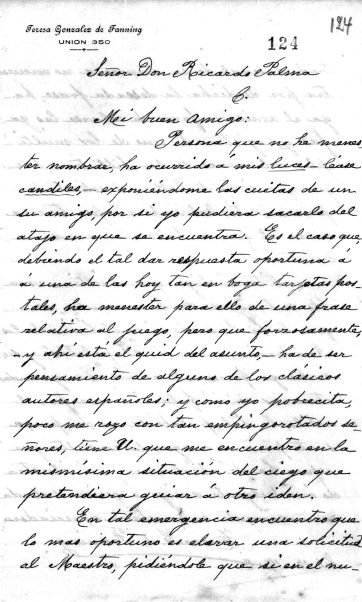 124
Teresa Gonzalez de Fanning
UNION 350
124
Señor Don Ricardo Palma
C.
Mi buen amigo:
Persona que no he menes
ter nombrar, ha ocurrido á mis luces – léase
candiles, – exponiéndome las cuitas de un
su amigo, por si yo pudiera sacarlo del
atajo en que se encuentra. Es el caso que
debiendo el tal dar respuesta oportuna á
á una de las hoy tan en boga tarjetas pos
tales, ha menester para ello de una frase
relativa al juego, pero que forzosamente,
– y ahí está el quid del asunto, – ha de ser
pensamiento de alguno de los clásicos
autores españoles; y como yo pobrecita,
poco me rozo con tan empingorotados se
ñores, tiene U. que me encuentro en la
mismísima situación del ciego que
pretendiera guiar á otro iden.
En tal emergencia encuentro que
lo mas oportuno es elevar una solicitud
al Maestro, pidiéndole que si en el nu-